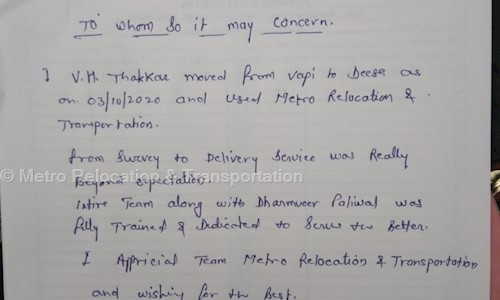 To whom so it may concern.
I V.H. Thakkar moved from Vapi to Deesa as
on 03/10/2020 and used Metro Relocation &
Transportation.
from Survey to Delivery Service was Really
Beyond expectation.
© Metro Relocation & Transportation
Intire Team along with Dharmveer Paliwal was
fully Trained & Dedicated to Serve the Better.
I Appricial Team Metro Relocation & Transportation
and wishing for the Best.